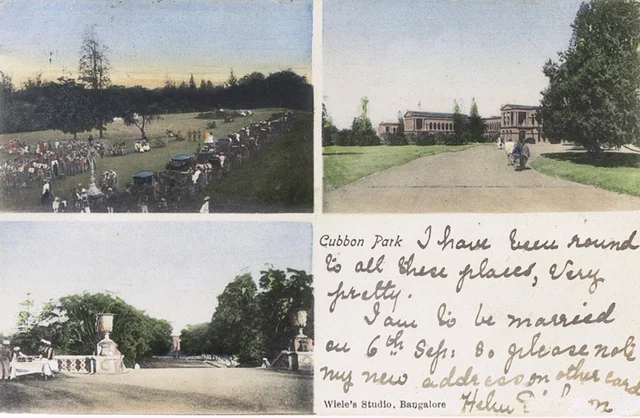 Cubbon Park I have been round
to all these places, Very
pretty.
I am to be married
on 6th Sep: So please note
my new address on other card
Helen
Wiele's Studio, Bangalore